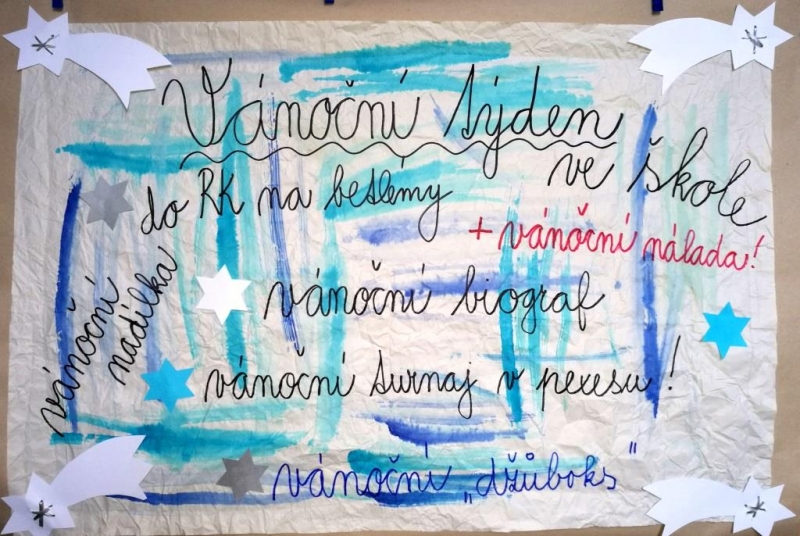 Vánoční týden
ve škole
do RK na betlémy
+ vánoční nálada!
vánoční
nadílka
vánoční biograf
vánoční turnaj v pexesu!
vánoční „džůboks"